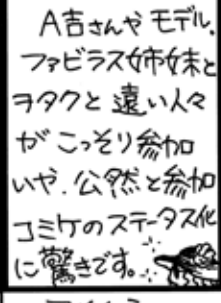 A吉さんや モデル、
ファビラス姉妹と
ヲタクと 遠い人々
が こっそり参加
いや、公然と参加
コミケのステータス化
に驚きです。